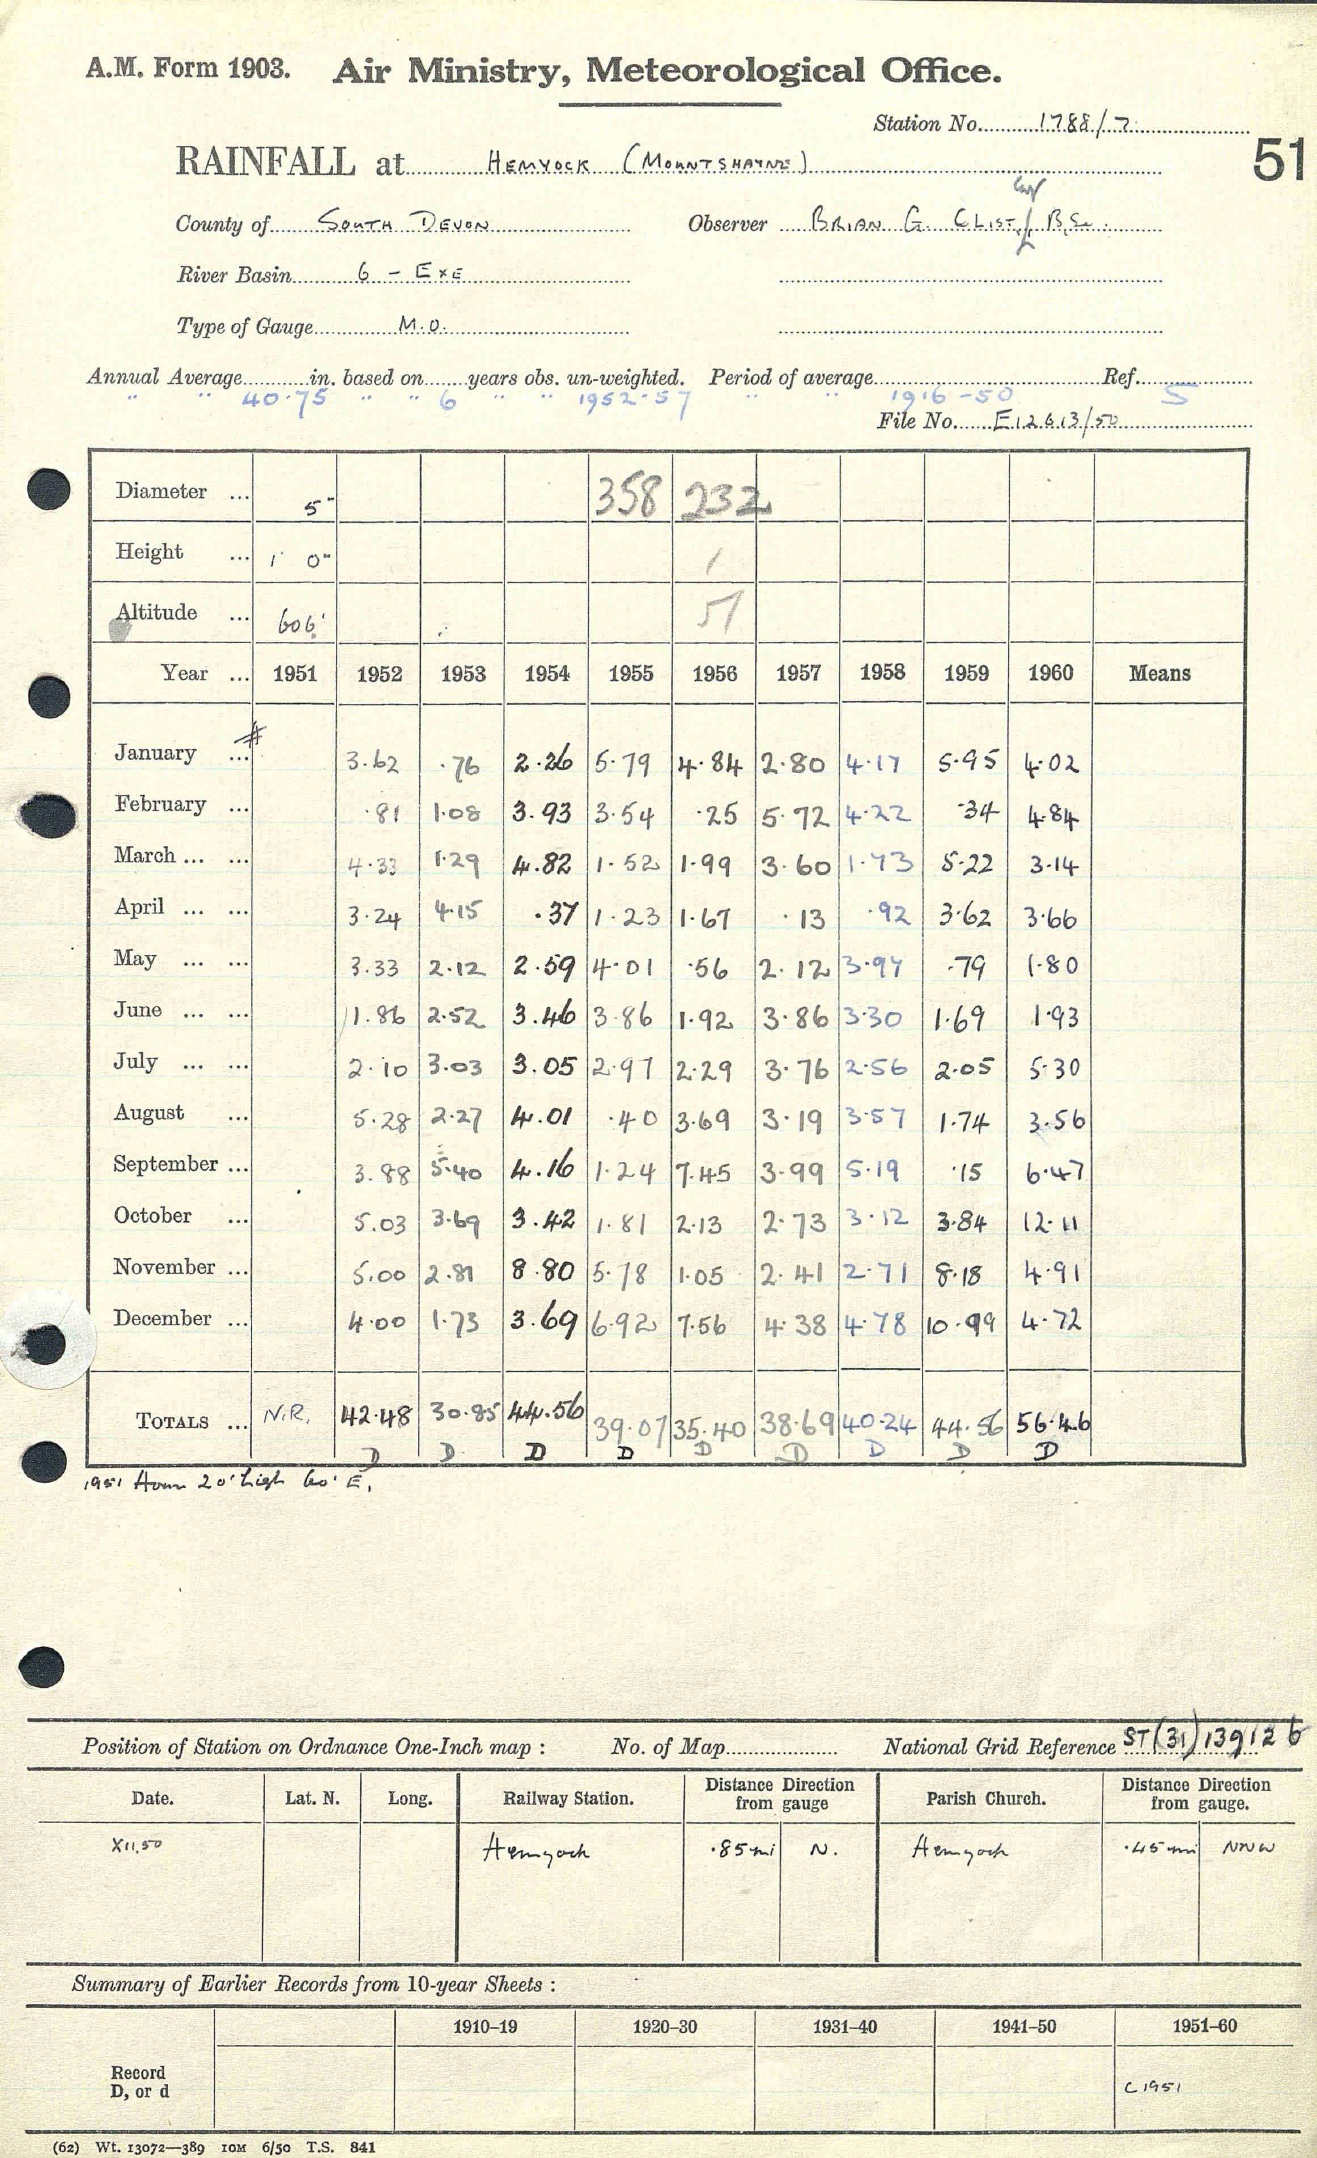 A.M. Form 1903. Air Ministry, Meteorological Office.
Station No. 1788/7
51
RAINFALL at HEMYOCK (MOUNTSHAYNE)
County of SOUTH DEVON Observer BRIAN G. CLIST, B.Sc.
River Basin 6 - EXE
Type of Gauge M.O.
Annual Average in. based on years obs. un-weighted. Period of average Ref.
" " 40.75 " " 6 " " 1952-57 " " 1916-50 S
File No. E12613/50
Diameter ... 5" 358 232
Height ... 1' 0" 1
Altitude ... 606' 51
Year ... 1951 1952 1953 1954 1955 1956 1957 1958 1959 1960 Means
January ... 3.62 .76 2.26 5.79 4.84 2.80 4.17 5.95 4.02
February ... .81 1.08 3.93 3.54 .25 5.72 4.22 .34 4.84
March ... ... 4.33 1.29 4.82 1.52 1.99 3.60 1.73 5.22 3.14
April ... ... 3.24 4.15 .37 1.23 1.67 .13 .92 3.62 3.66
May ... ... 3.33 2.12 2.59 4.01 .56 2.12 3.97 .79 1.80
June ... ... 1.86 2.52 3.46 3.86 1.92 3.86 3.30 1.69 1.93
July ... ... 2.10 3.03 3.05 2.97 2.29 3.76 2.56 2.05 5.30
August ... 5.28 2.27 4.01 .40 3.69 3.19 3.57 1.74 3.56
September ... 3.88 5.40 4.16 1.24 7.45 3.99 5.19 .15 6.47
October ... 5.03 3.69 3.42 1.81 2.13 2.73 3.12 3.84 12.11
November ... 5.00 2.81 8.80 5.78 1.05 2.41 2.71 8.18 4.91
December ... 4.00 1.73 3.69 6.92 7.56 4.38 4.78 10.99 4.72
TOTALS ... N.R. 42.48 30.85 44.56 39.07 35.40 38.69 40.24 44.56 56.46
D D D D D D D D D
1951 20' high 60' E.
Position of Station on Ordnance One-Inch map : No. of Map National Grid Reference ST(31)139126
Date. Lat. N. Long. Railway Station. Distance from gauge Direction Parish Church. Distance from gauge. Direction
XII.50 Hemyock .85mi N. Hemyock .45mi NNW
Summary of Earlier Records from 10-year Sheets :
1910-19 1920-30 1931-40 1941-50 1951-60
Record
D, or d C 1951
(62) Wt. 13072—389 10M 6/50 T.S. 841